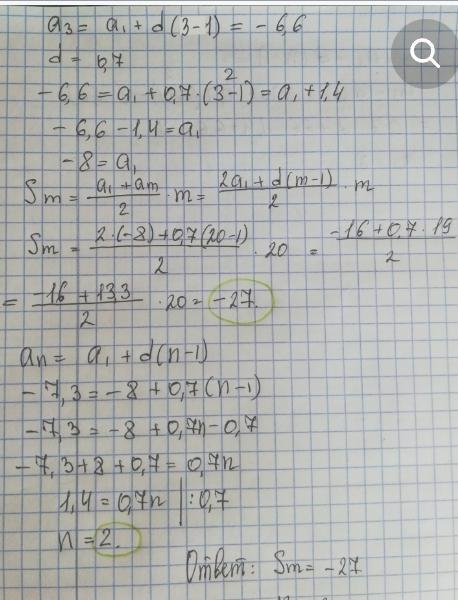 a₃ = a₁ + d(3-1) = -6,6
d = 0,7
-6,6 = a₁ + 0,7·(3-1) = a₁ + 1,4
2
-6,6 - 1,4 = a₁
-8 = a₁
Sm = (a₁ + am)/2 · m = (2a₁ + d(m-1))/2 · m
Sm = (2·(-8) + 0,7(20-1))/2 · 20 = (-16 + 0,7·19)/2
= (-16 + 13,3)/2 · 20 = -27.
an = a₁ + d(n-1)
-7,3 = -8 + 0,7(n-1)
-7,3 = -8 + 0,7n - 0,7
-7,3 + 8 + 0,7 = 0,7n
1,4 = 0,7n | :0,7
n = 2.
Ответ: Sm = -27